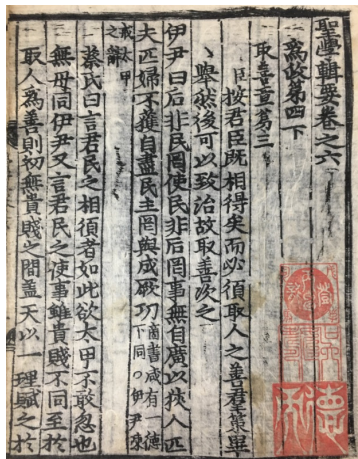 聖學輯要卷之六
爲政第四下
取善章第三
臣按君臣既相得矣而必須取人之善羣策畢
擧然後可以致治故取善次之
伊尹曰后非民罔使民非后罔事無自廣以狹人匹
夫匹婦不獲自盡民主罔與成厥功商書咸有一德下同○伊尹陳
戒太甲之辭
蔡氏曰言君民之相須者如此欲太甲不敢忽也
無毋同伊尹又言君民之使事雖貴賤不同至於
取人爲善則初無貴賤之間蓋天以一理賦之於